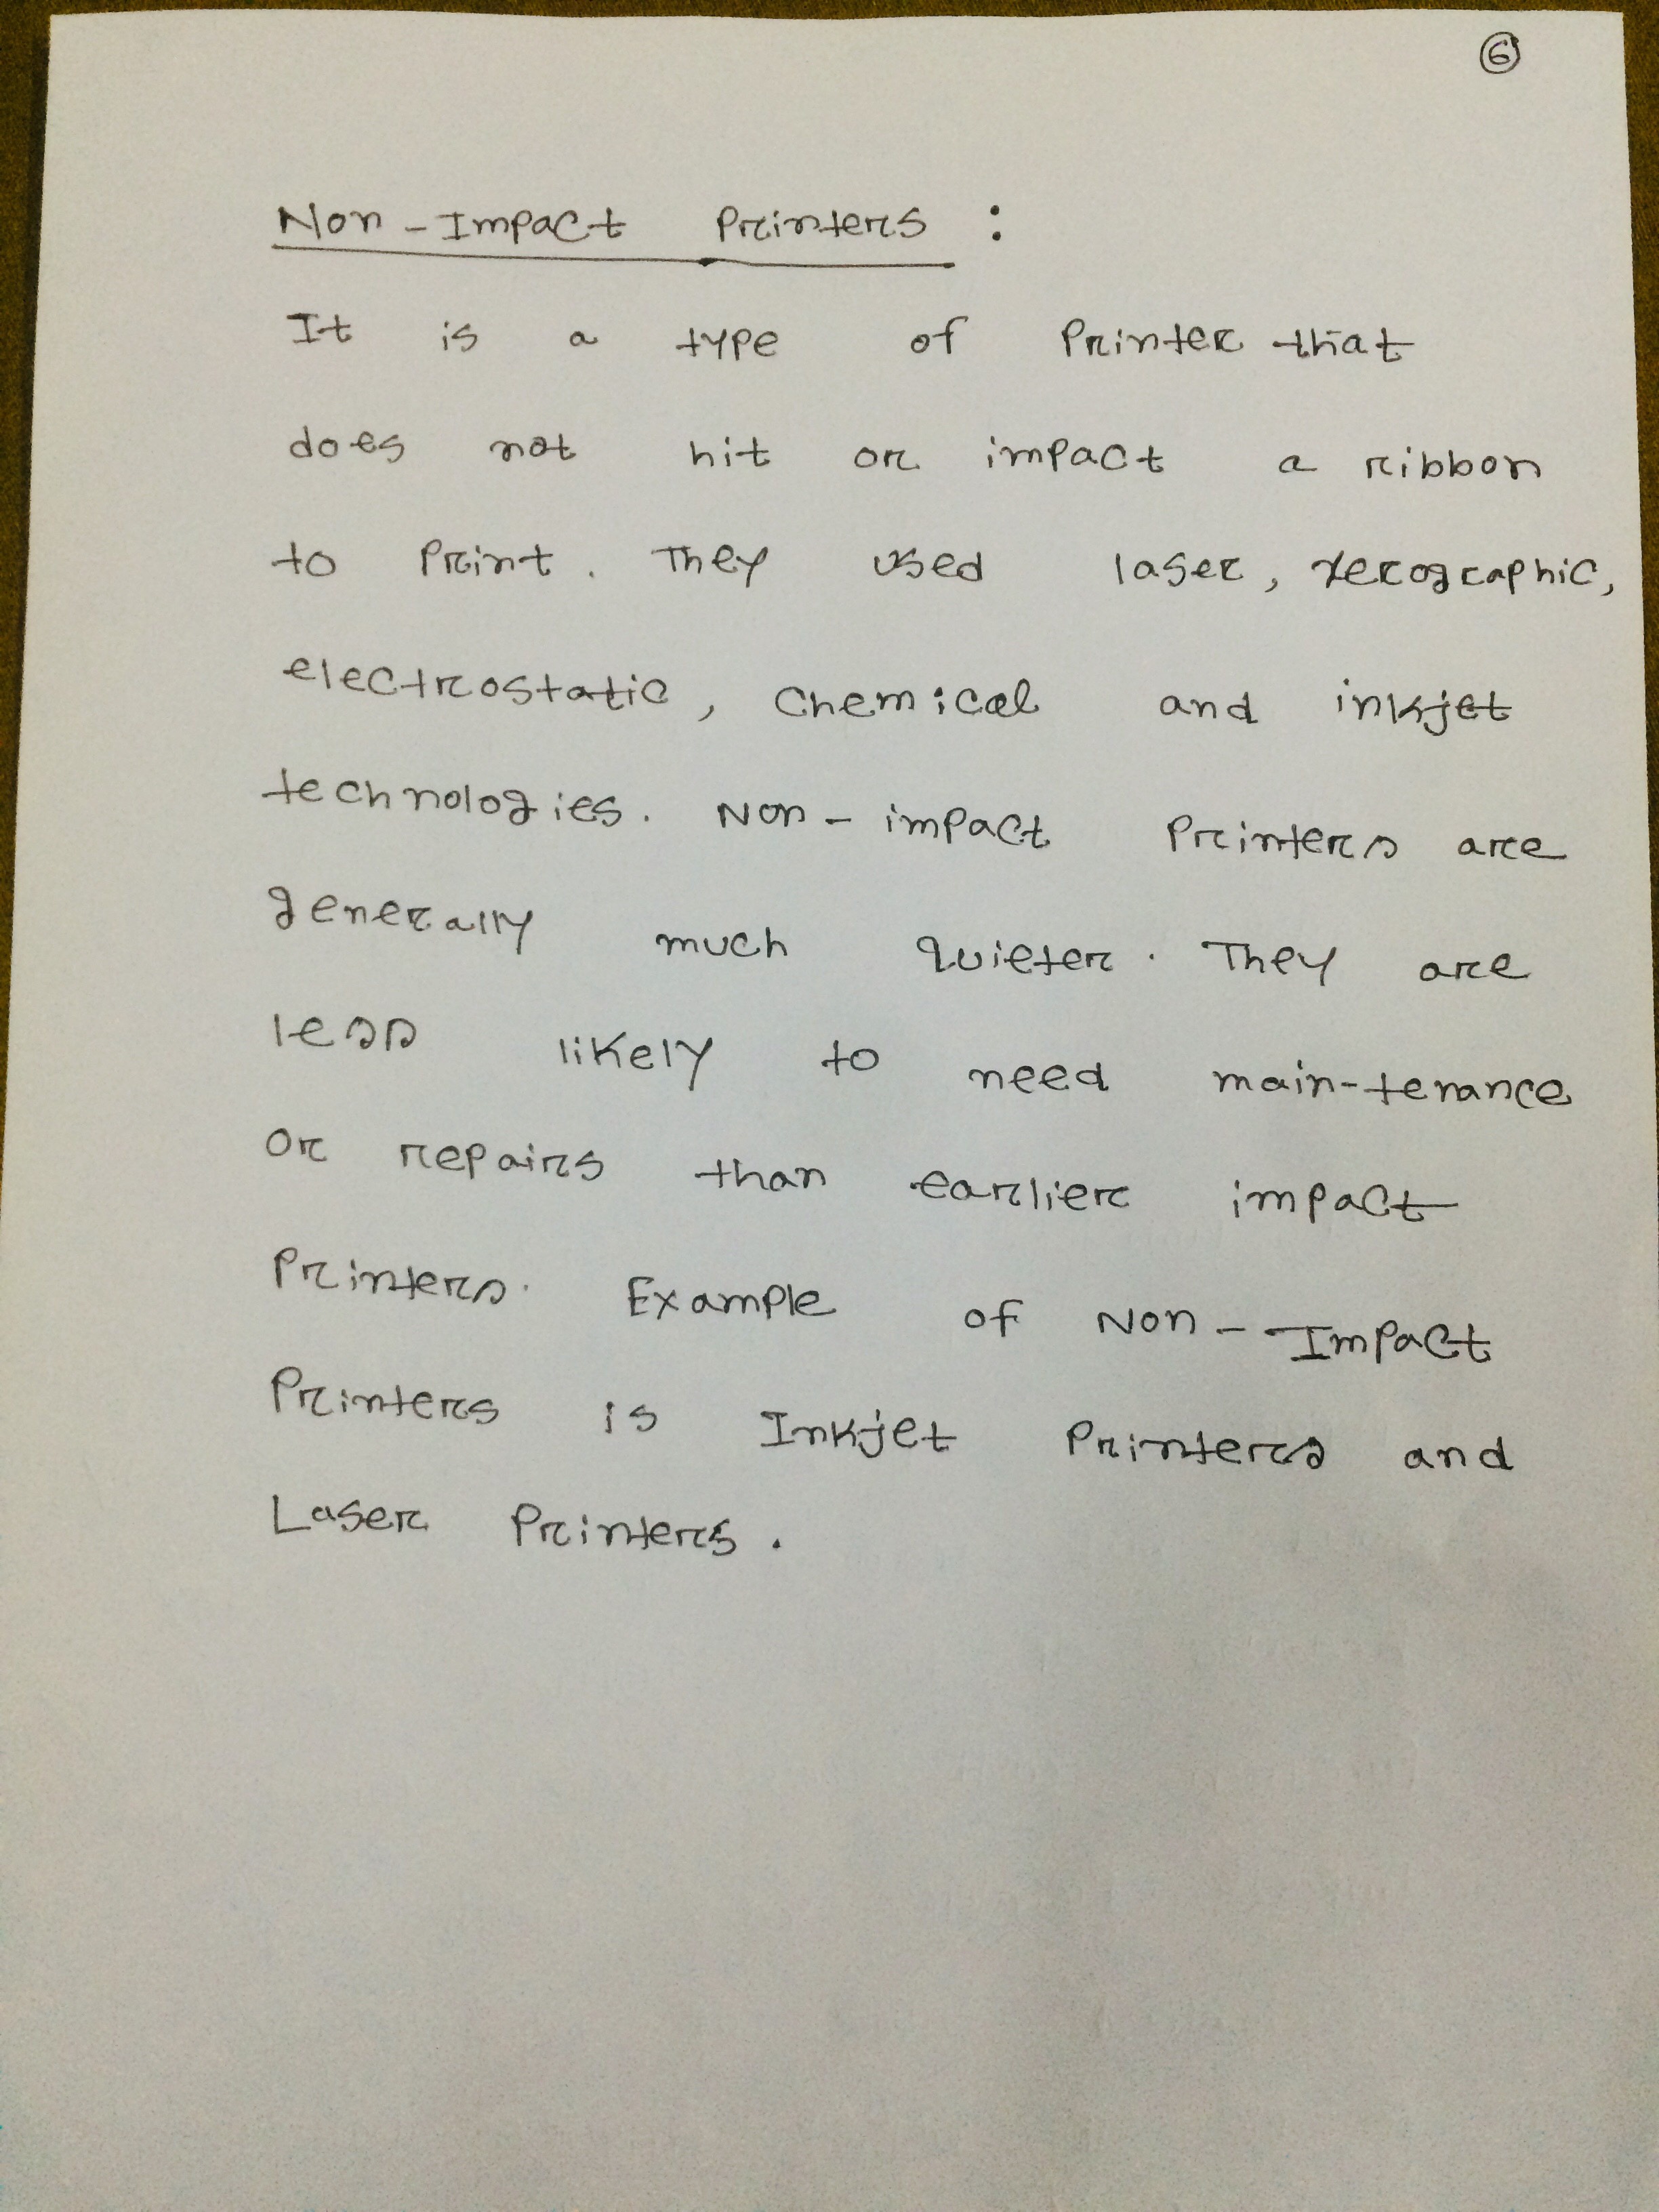 6
Non-Impact Printers :
It is a type of Printer that
does not hit or impact a ribbon
to Print. They used laser, xerographic,
electrostatic, Chemical and inkjet
technologies. Non-impact Printers are
generally much quieter. They are
less likely to need main-tenance
or repairs than earlier impact
Printers. Example of Non-Impact
Printers is Inkjet Printers and
Laser Printers.